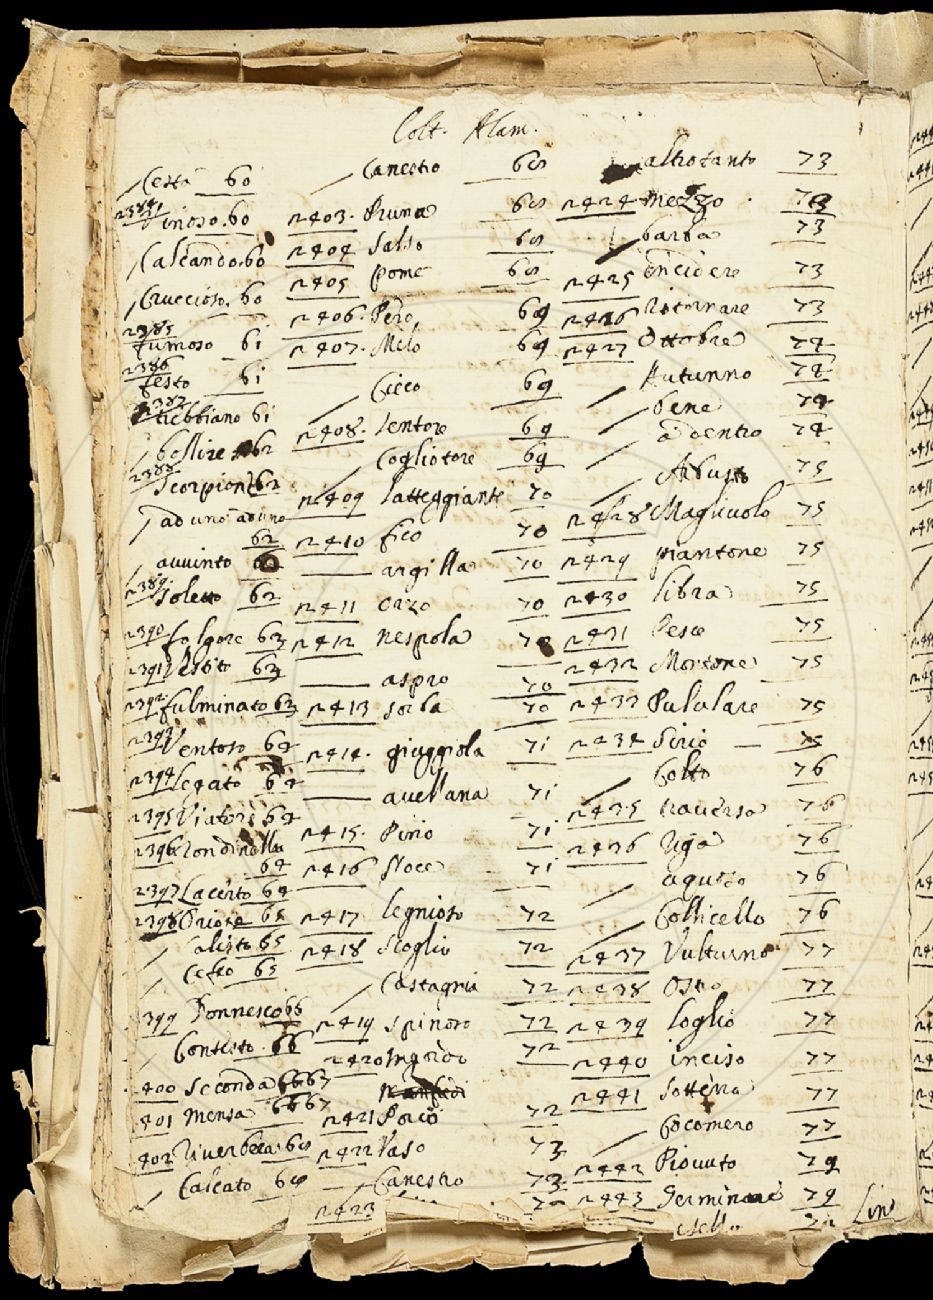 Colt. Alam.
Cesta 60
2384 Vinoso. 60
Calcando. 60
Cruccioso. 60
2385
fumoso 61
2386
festo 61
2387
trebbiano 61
bollire 62
2388
Scorpione 62
ad uno ad uno
62
auuinto
2389
Soletto 62
2390 folgore 63
2391 Vestito 63
2392 fulminato 63
2393 Ventoso 64
2394 legato 64
2395 Viatore 64
2396 rondinella
64
2397 Lacerto 64
2398 65
65
Cetro 65
399 66
Contesto. 66
400 Seconda 66 67
401 Mensa 66 67
402
Calcato
Canestro 68
2403. Pruna 68
2404 Salso 68
2405 Pome 68
2406. Pero 69
2407. Melo 69
Cieco 69
2408. Sentore 69
Coglitore 69
2409 latteggiante 70
2410 fico 70
argilla 70
2411 orzo 70
2412 nespola 70
aspro 70
2413 sorba 70
2414. giuggiola 71
auellana 71
2415. Pino 71
2416 Noce 71
2417 legnioso 72
2418 Scoglio 72
Castagnia 72
2419 Spinoso 72
2420 Ingordo 72
2421 Porco 72
2422 Vaso 73
Canestro 73
2423
altrotanto 73
2424 mezzo. 73
barba 73
2425 incidere 73
2426 ritornare 73
2427 Ottobre 74
Autunno 74
bene 74
a dentro 74
Arbusto 75
2428 Magliuolo 75
2429 piantone 75
2430 libra 75
2431 Pesce 75
2432 Mortone 75
2433 Pululare 75
2434 Sirio 75
Colto 76
2435 trauerso 76
2436 riga 76
aguzzo 76
Collicello 76
2437 Vulturno 77
2438 Ostro 77
2439 loglio 77
2440 inciso 77
2441 Sotterra 77
Cocomero 77
2442 Piouuto 79
2443 Germinare 79
Lin